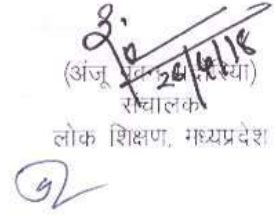 (अंजू
26/4/18
संचालक
लोक शिक्षण, मध्यप्रदेश